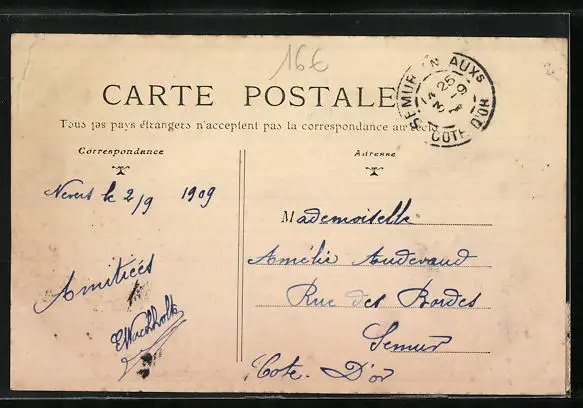 16€
CARTE POSTALE
Tous les pays étrangers n'acceptent pas la correspondance au recto
SEMUR EN AUXS
COTE D'OR
Correspondance
Adresse
Nevers le 2/9 1909
Amitiées
Mademoiselle
Amélie Audevaud
Rue des Bordes
Semur
Cote-D'or